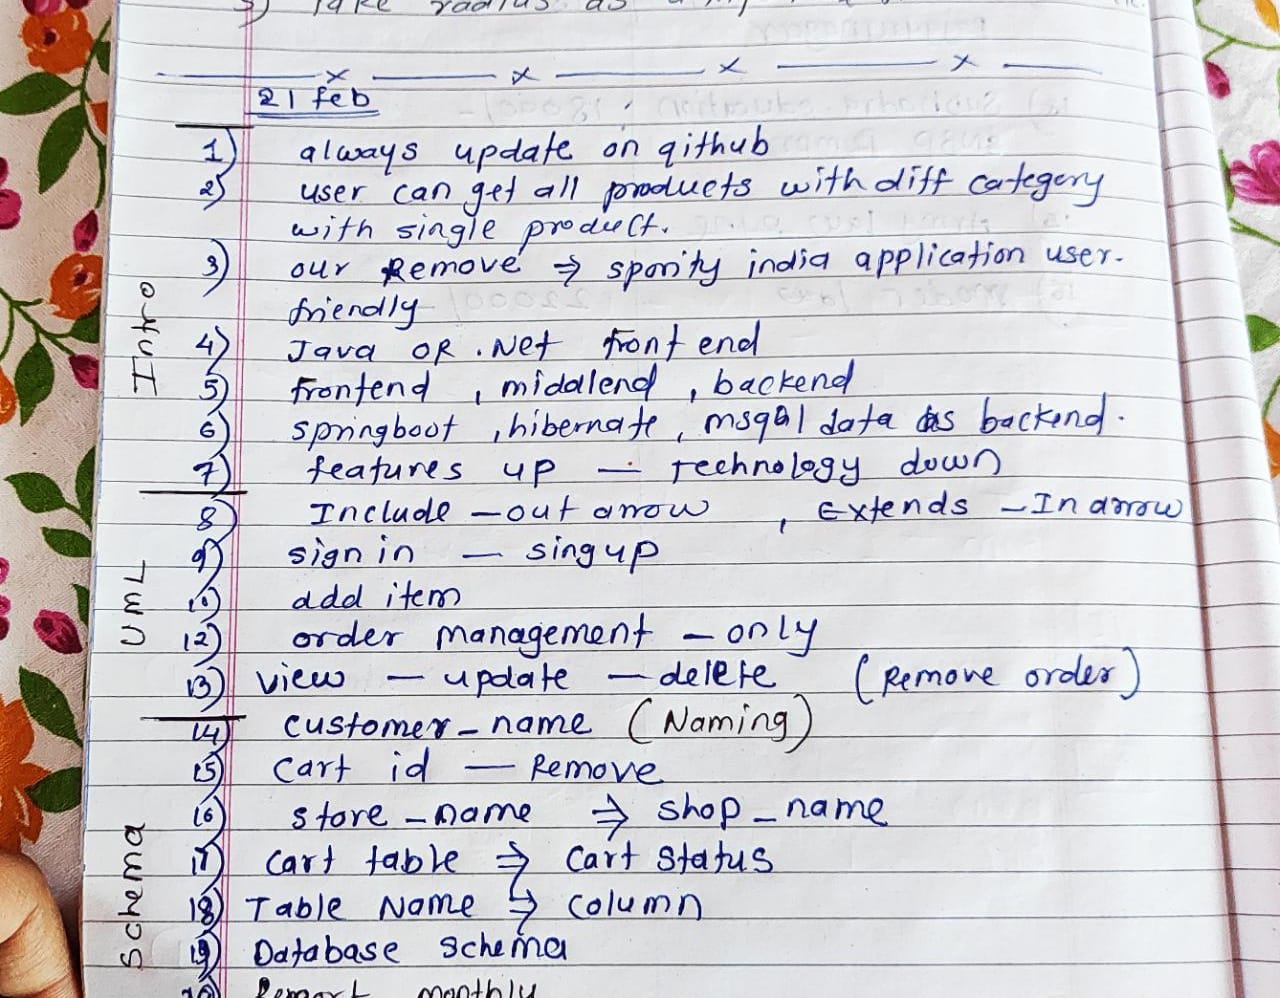 3) Take radius as
21 feb
Intro
1) always update on github
2) user can get all products with diff category
with single product.
3) our Remove ⇒ sporify india application user-
friendly
4) Java OR .Net front end
5) frontend , middlend , backend
6) springboot , hibernate , msqal data as backend.
7) features up — technology down
UML
8) Include — out arrow , Extends — In arrow
9) sign in — singup
10) add item
12) order management — only
13) view — update — delete (Remove order)
Schema
14) customer_name (Naming)
15) cart id — Remove
16) store_name ⇒ shop_name
17) cart table ⇒ cart status
18) Table Name ↳ column
19) Database schema
20) Remort monthly